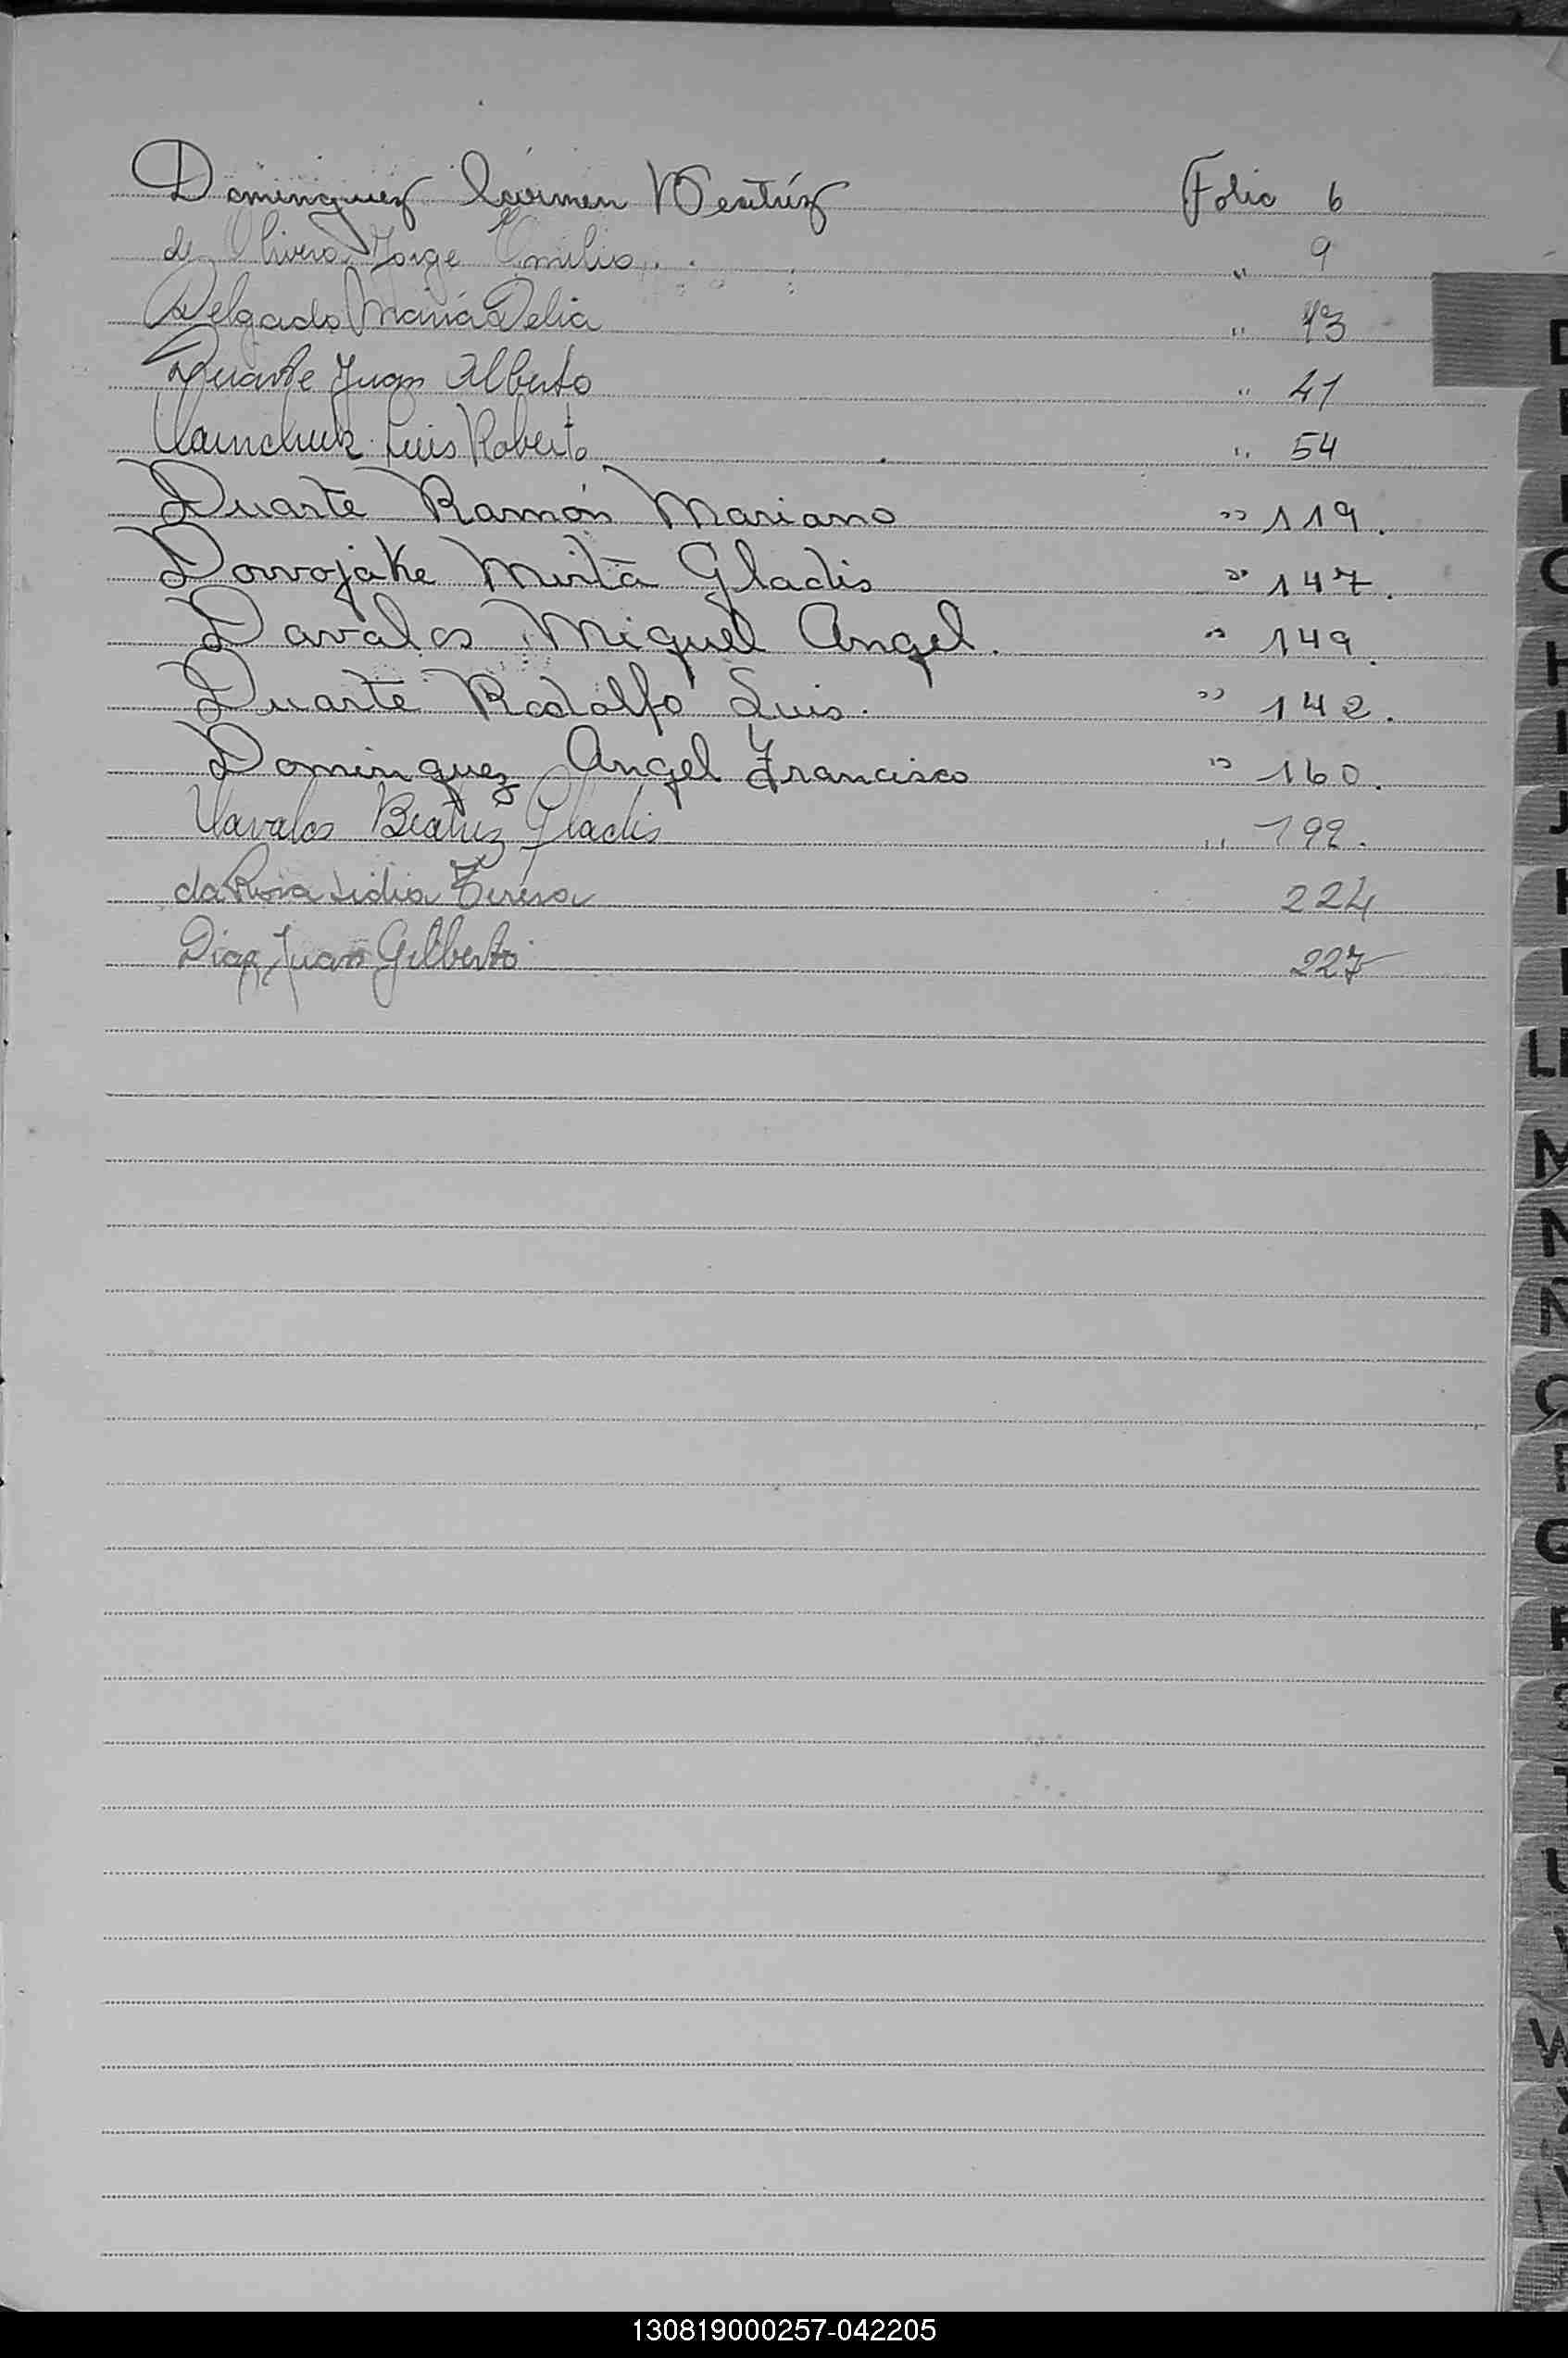 Dominguez Carmen Beatríz Folio 6
de Olivera Jorge Emilio " 9
Delgado María Delia " 13
Duarte Juan Alberto " 41
Luis Roberto " 54
Duarte Ramón Mariano " 119.
Mirta Gladis " 147.
Davalos Miguel Angel. " 149.
Duarte Rodolfo Luis. " 142.
Dominguez Angel Francisco " 160.
Davalos Beatriz Gladis " 192.
da Rosa Lidia Teresa 224
Diaz Juan Gilberto 227
D
H
J
LL
M
N
Ñ
W
130819000257-042205